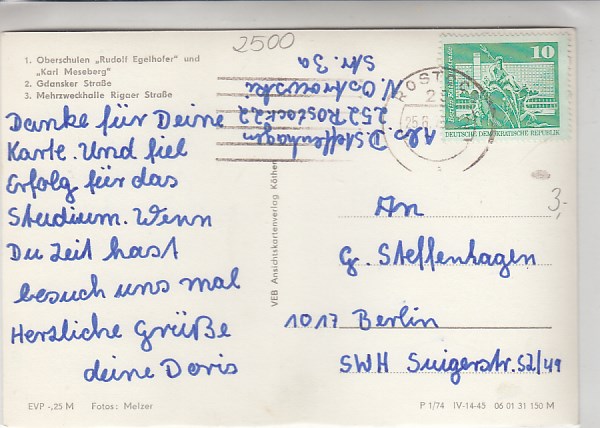 2500
1. Oberschulen „Rudolf Egelhofer" und
„Karl Meseberg"
2. Gdansker Straße
3. Mehrzweckhalle Rigaer Straße
Danke für Deine
Karte. Und fiel
Erfolg für das
Studium. Wenn
Du Zeit hast
besuch uns mal
Herzliche Grüße
deine Doris
Abs. D. Steffenhagen
252 Rostock 22
N. Ostrowski
Str. 3a
ROSTOCK
25
25.8.
10
DEUTSCHE DEMOKRATISCHE REPUBLIK
3,-
An
G. Steffenhagen
1017 Berlin
SWH Suigerstr. 52/49
VEB Ansichtskartenverlag Köthen
EVP -,25 M Fotos: Melzer
P 1/74 IV-14-45 06 01 31 150 M